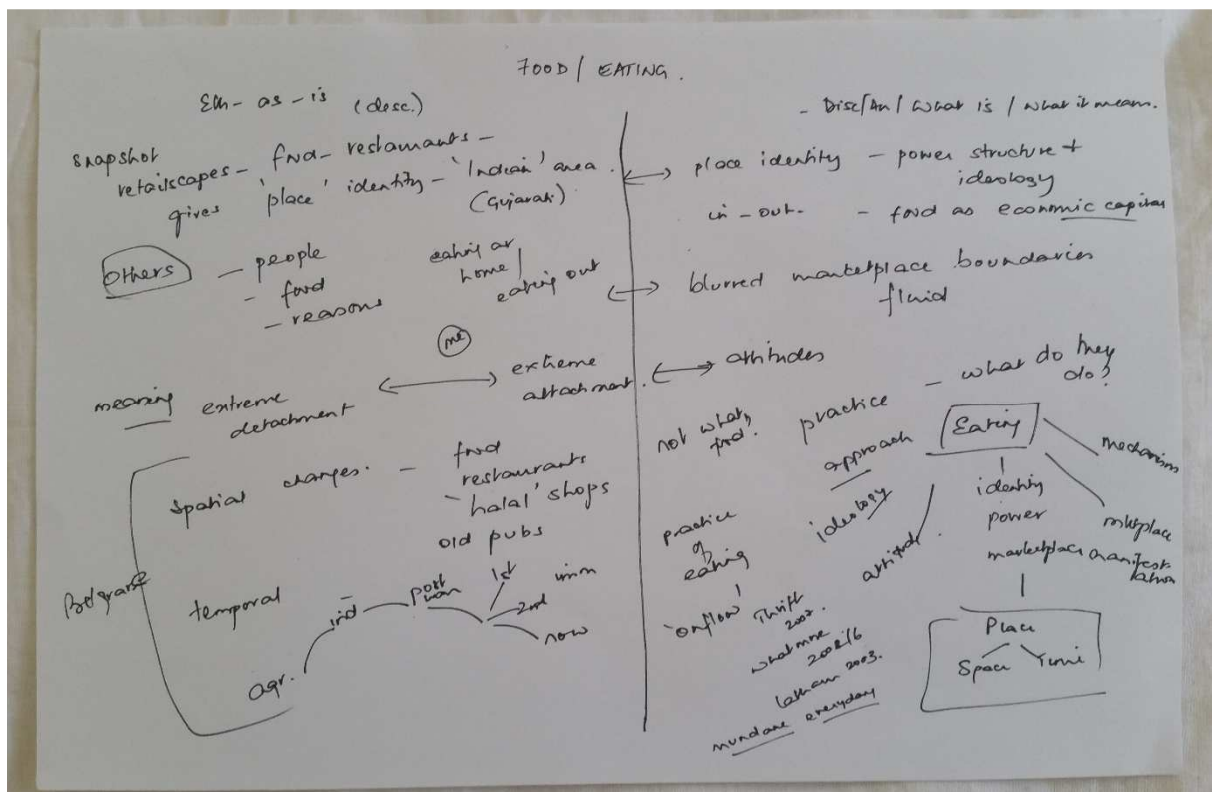 FOOD / EATING.
Eth-as-is (desc.)
snapshot
retailscapes - food - restaurants -
gives 'place' identity - 'Indian' area.
(Gujarati)
Others - people
- food
- reasons
eating at
home /
eating out
me
meaning extreme
detachment
extreme
attachment.
Belgrave
spatial changes. - food
restaurants
'halal' shops
old pubs
temporal -
agr.
ind
post
war
1st
2nd imm
now
- Disc/An/ what is / what it means.
place identity - power structure +
ideology
in-out. - food as economic capital
blurred marketplace boundaries
fluid
attitudes
not what,
food.
practice - what do they
do?
approach
ideology
attitude.
Eating
mechanism
mktplace
manifest-
ation
identity
power
marketplace
Place
Space Time
practice
of
eating
'onflow' Thrift
2002.
Whatmore
2002/6
Latham 2003.
mundane everyday